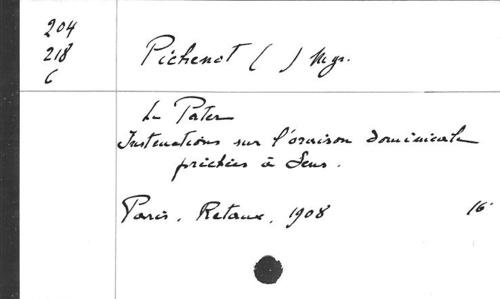 204
218
C
Pichenot ( ) Mgr.
Le Pater
Instructions sur l'oraison dominicale
prêchées à Sens.
Paris. Retaux, 1908 16°